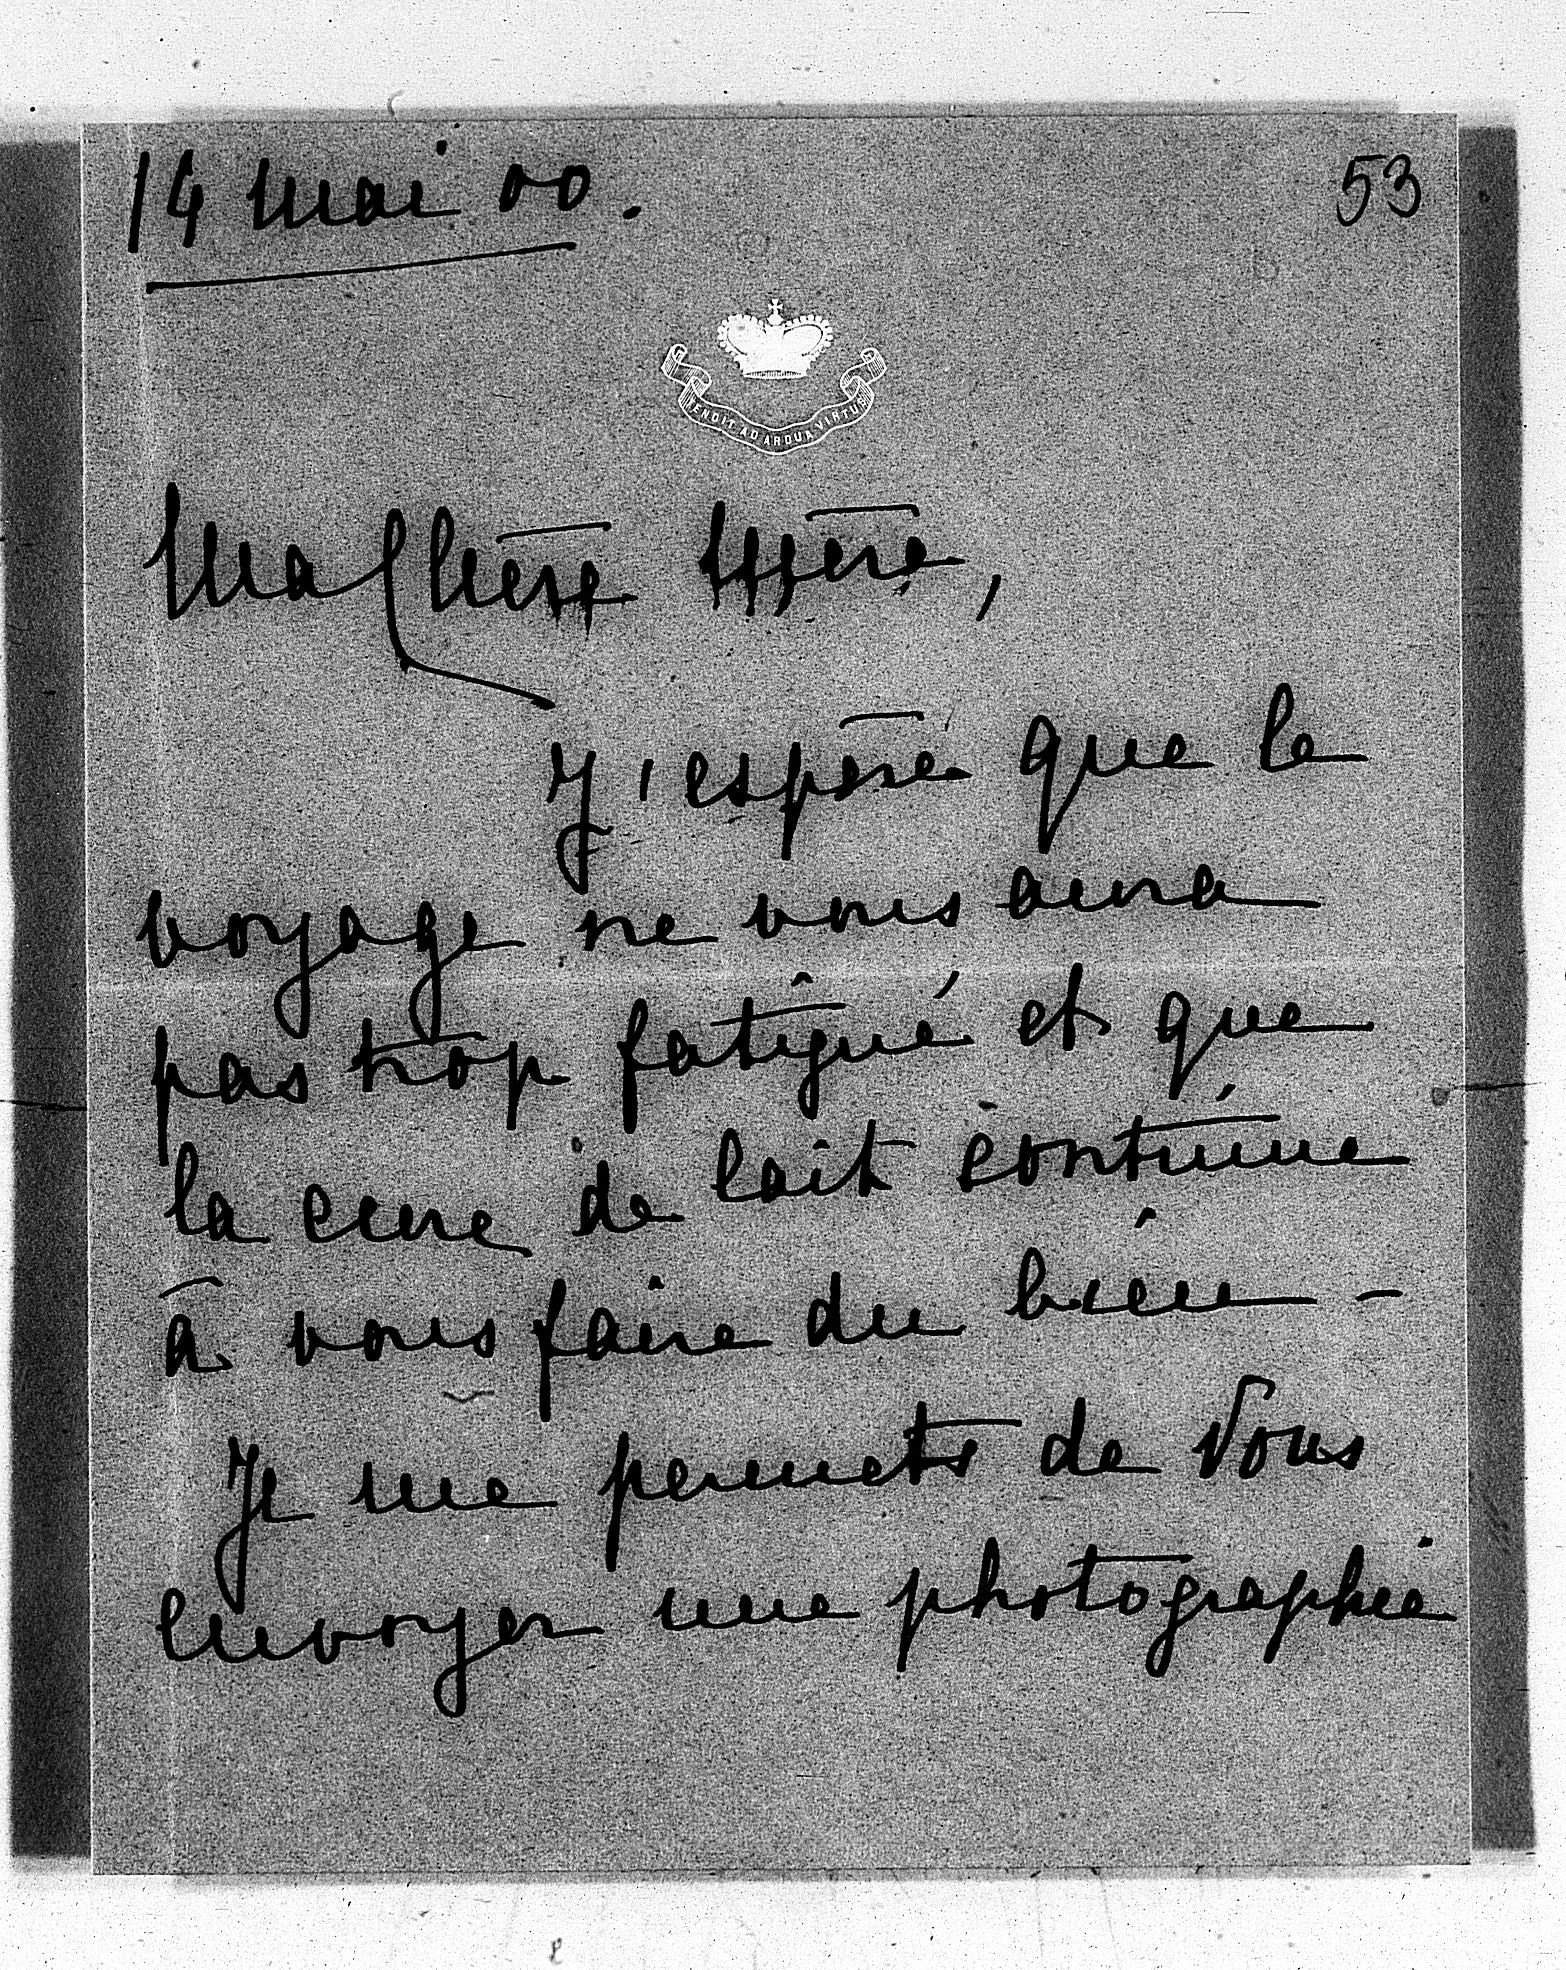 14 mai 00.
53
TENDIT AD ARDUA VIRTUS
Ma Chère Mère,
J'espère que le
voyage ne vous aura
pas trop fatigué et que
la cure de lait continue
à vous faire du bien -
Je me permets de Vous
envoyer une photographie